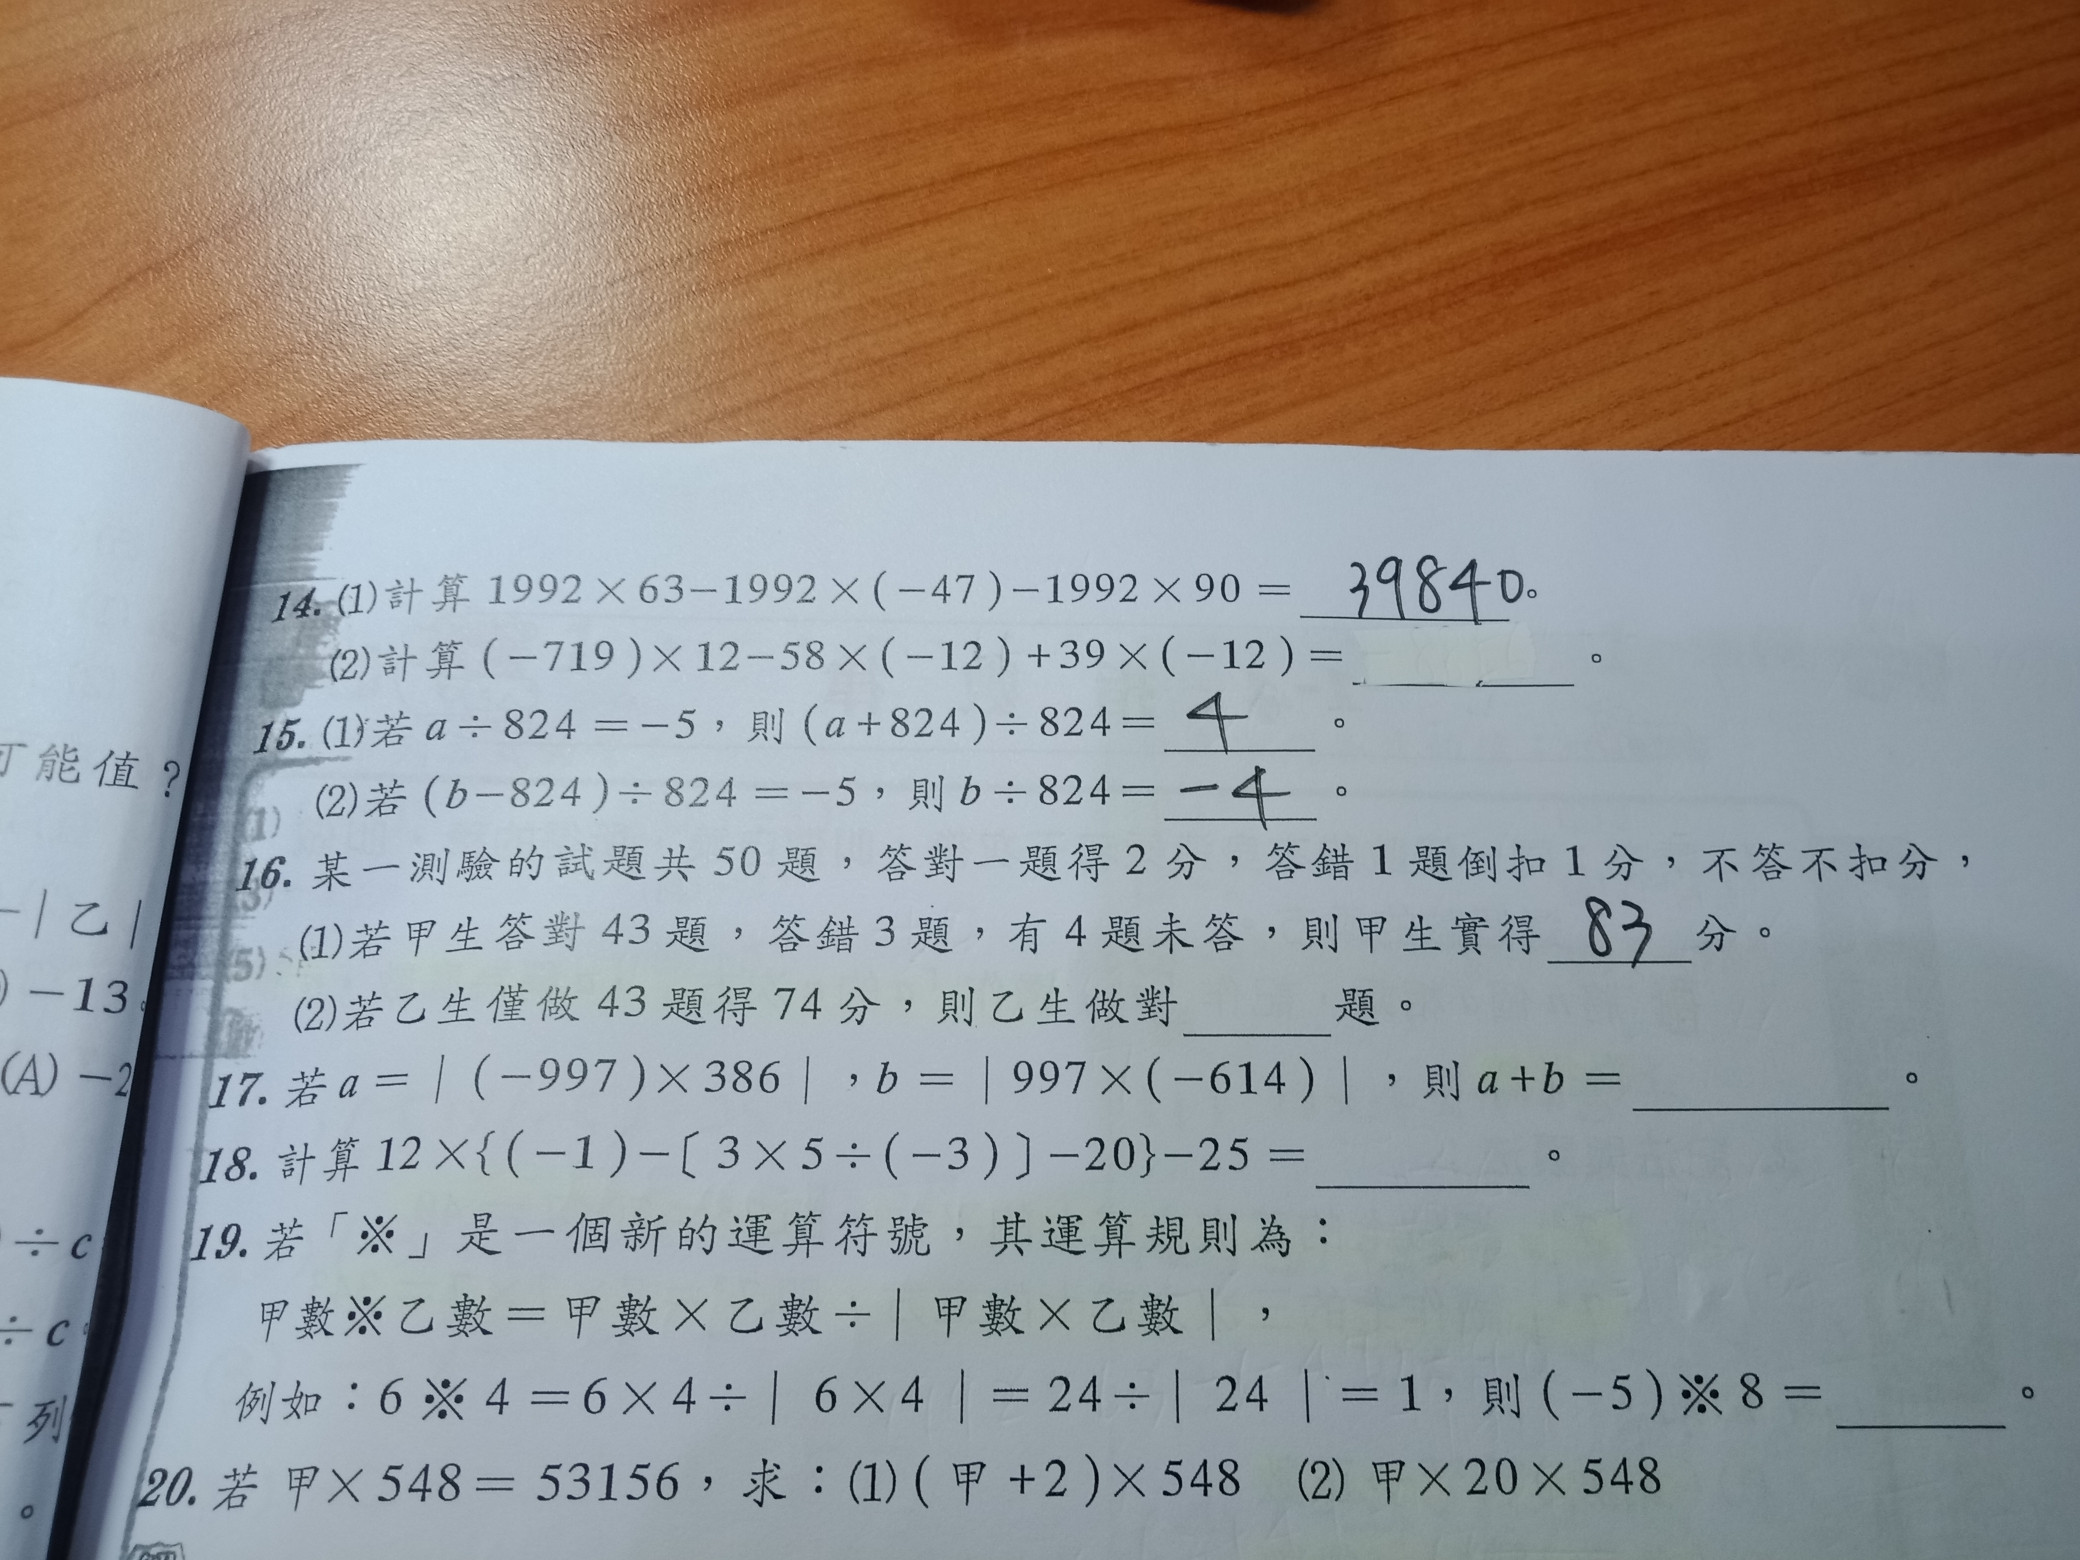 14. (1)計算 1992×63−1992×(−47)−1992×90= 39840。
(2)計算 (−719)×12−58×(−12)+39×(−12)=＿＿＿。
15. (1)若 a÷824=−5，則 (a+824)÷824= 4 。
(2)若 (b−824)÷824=−5，則 b÷824= −4 。
16. 某一測驗的試題共 50 題，答對一題得 2 分，答錯 1 題倒扣 1 分，不答不扣分，
(1)若甲生答對 43 題，答錯 3 題，有 4 題未答，則甲生實得 83 分。
(2)若乙生僅做 43 題得 74 分，則乙生做對＿＿＿題。
17. 若 a=|(−997)×386|，b=|997×(−614)|，則 a+b=＿＿＿。
18. 計算 12×{(−1)−〔3×5÷(−3)〕−20}−25=＿＿＿。
19. 若「※」是一個新的運算符號，其運算規則為：
甲數※乙數=甲數×乙數÷|甲數×乙數|，
例如：6※4=6×4÷|6×4|=24÷|24|=1，則 (−5)※8=＿＿＿。
20. 若 甲×548=53156，求：(1)(甲+2)×548 (2) 甲×20×548
可能值？
−|乙|
)−13。
(A)−2
÷c
÷c
列
(1)
(5)